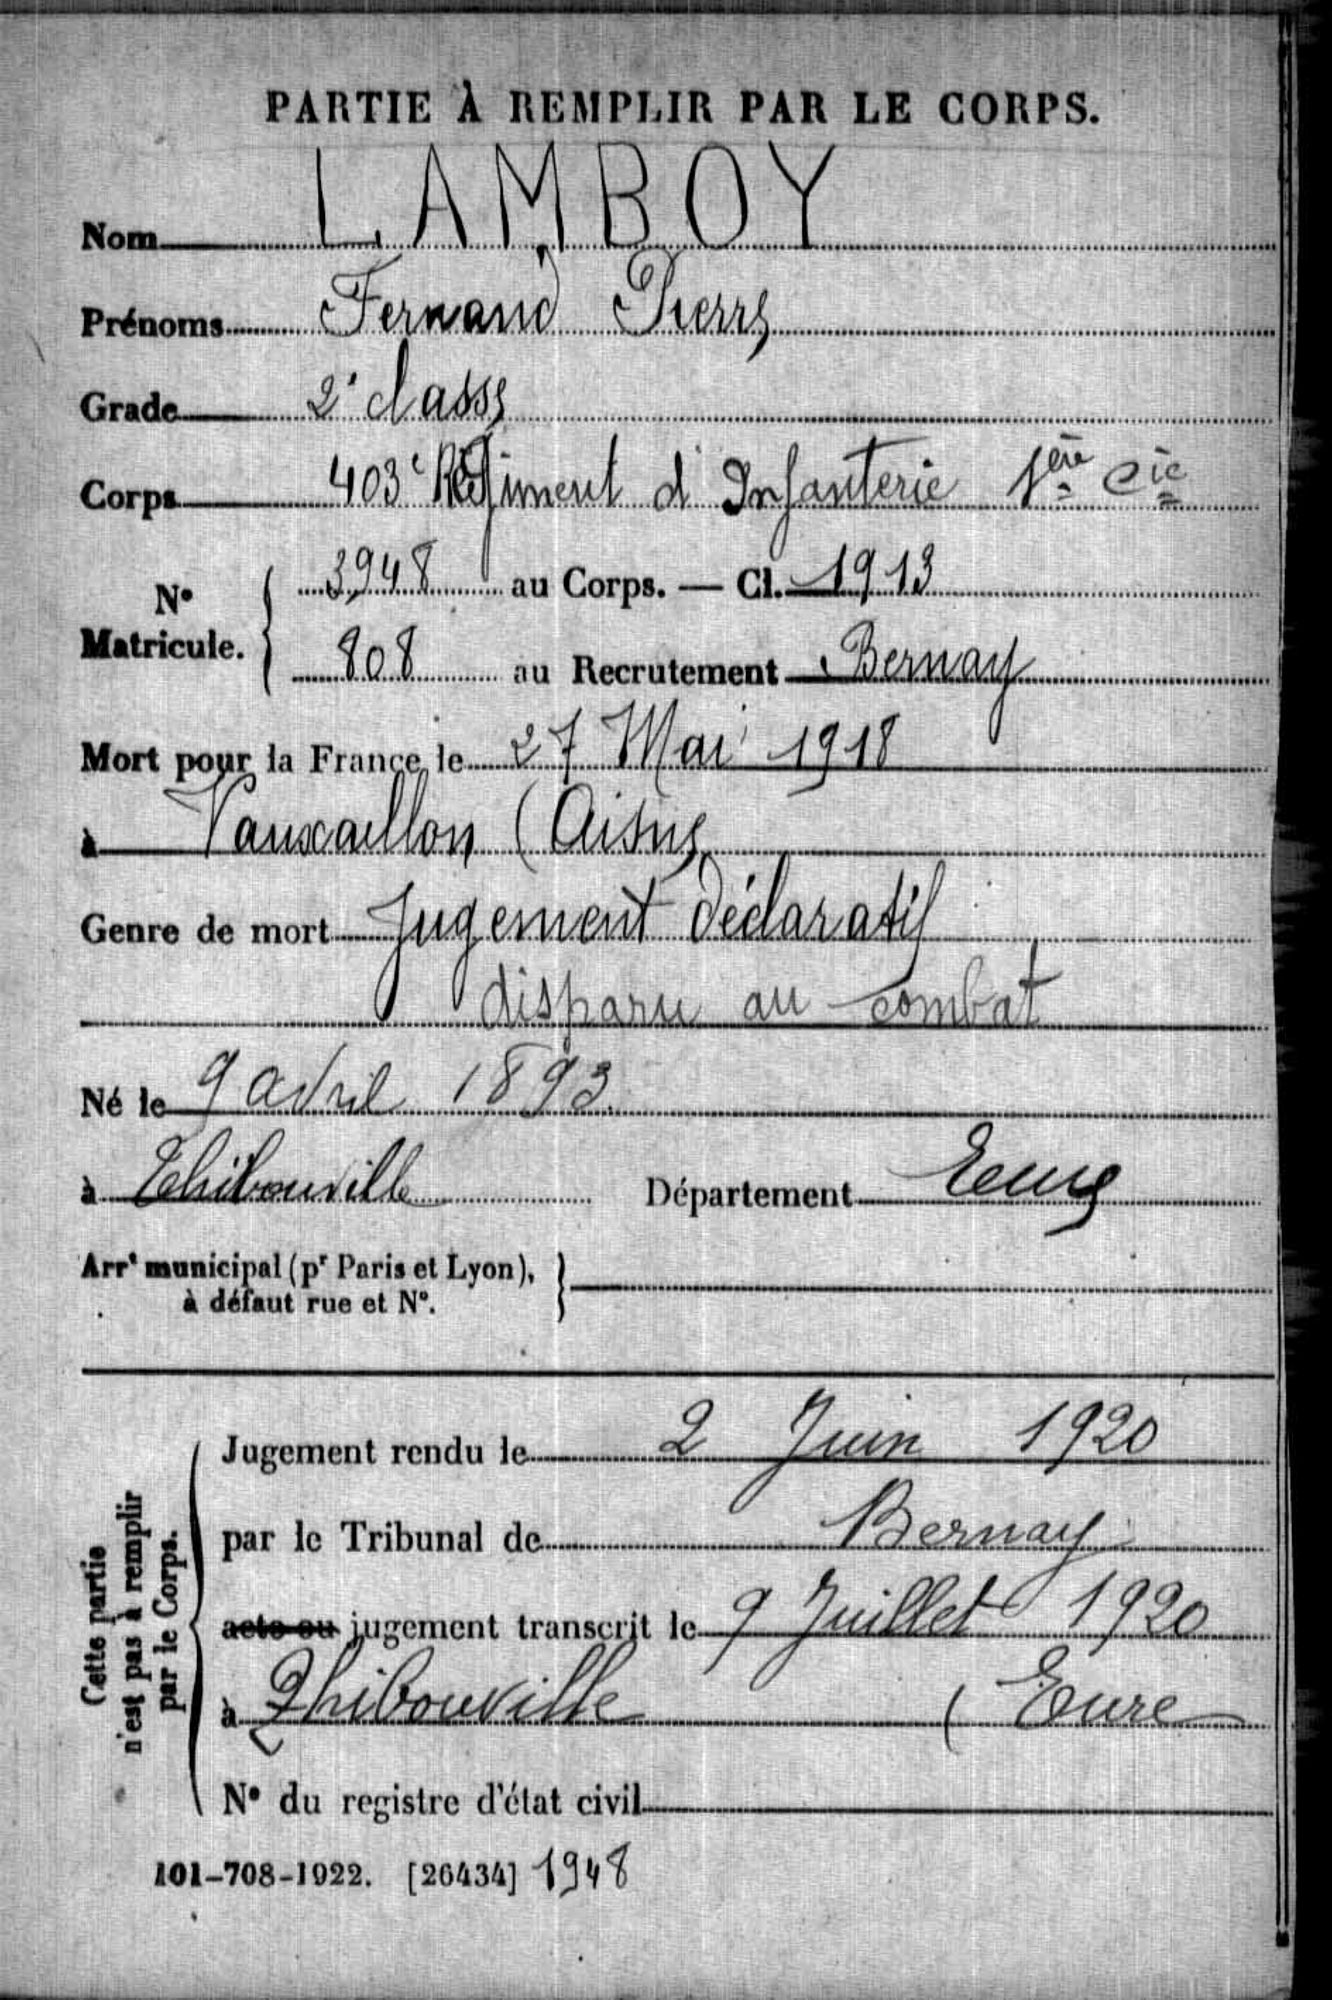 PARTIE À REMPLIR PAR LE CORPS.
Nom LAMBOY
Prénoms Fernand Pierre
Grade 2e classe
Corps 403e Régiment d'Infanterie 1ère Cie
N° Matricule. { 3948 au Corps. — Cl. 1913
808 au Recrutement Bernay
Mort pour la France le 27 Mai 1918
à Vauxaillon (Aisne
Genre de mort Jugement déclaratif
disparu au combat
Né le 9 avril 1893
à Thibouville Département Eure
Arrt municipal (pr Paris et Lyon), }
à défaut rue et N°.
Cette partie
n'est pas à remplir
par le Corps.
Jugement rendu le 2 Juin 1920
par le Tribunal de Bernay
acte ou jugement transcrit le 9 Juillet 1920
à Thibouville (Eure
N° du registre d'état civil
101-708-1922. [26434] 1948